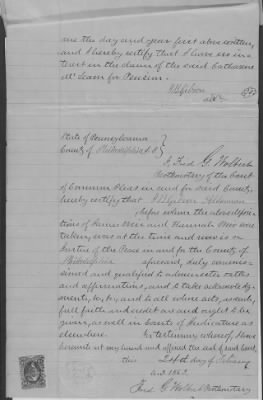 me the day and year first above written,
and I hereby certify that I have no in-
terest in the claim of the said Catharine
for Pension.
State of Pennsylvania
County of Philadelphia
I, Fred G. Wolbert
Prothonotary of the Court
of Common Pleas in and for said County,
hereby certify that Alderman
before whom the above deposi-
tions of James and Hannah were
taken, was at the time and now is a
Justice of the Peace in and for the County of
Philadelphia aforesaid, duly commis-
sioned and qualified to administer oaths
and affirmations, and to take acknowledg-
ments, &c, &c, and to all whose acts, as such,
full faith and credit are and ought to be
given, as well in Courts of Judicature as
elsewhere. In testimony whereof, I have
hereunto set my hand and affixed the seal of said Court,
this 24th day of February
A.D. 1863.
Fred G. Wolbert Prothonotary